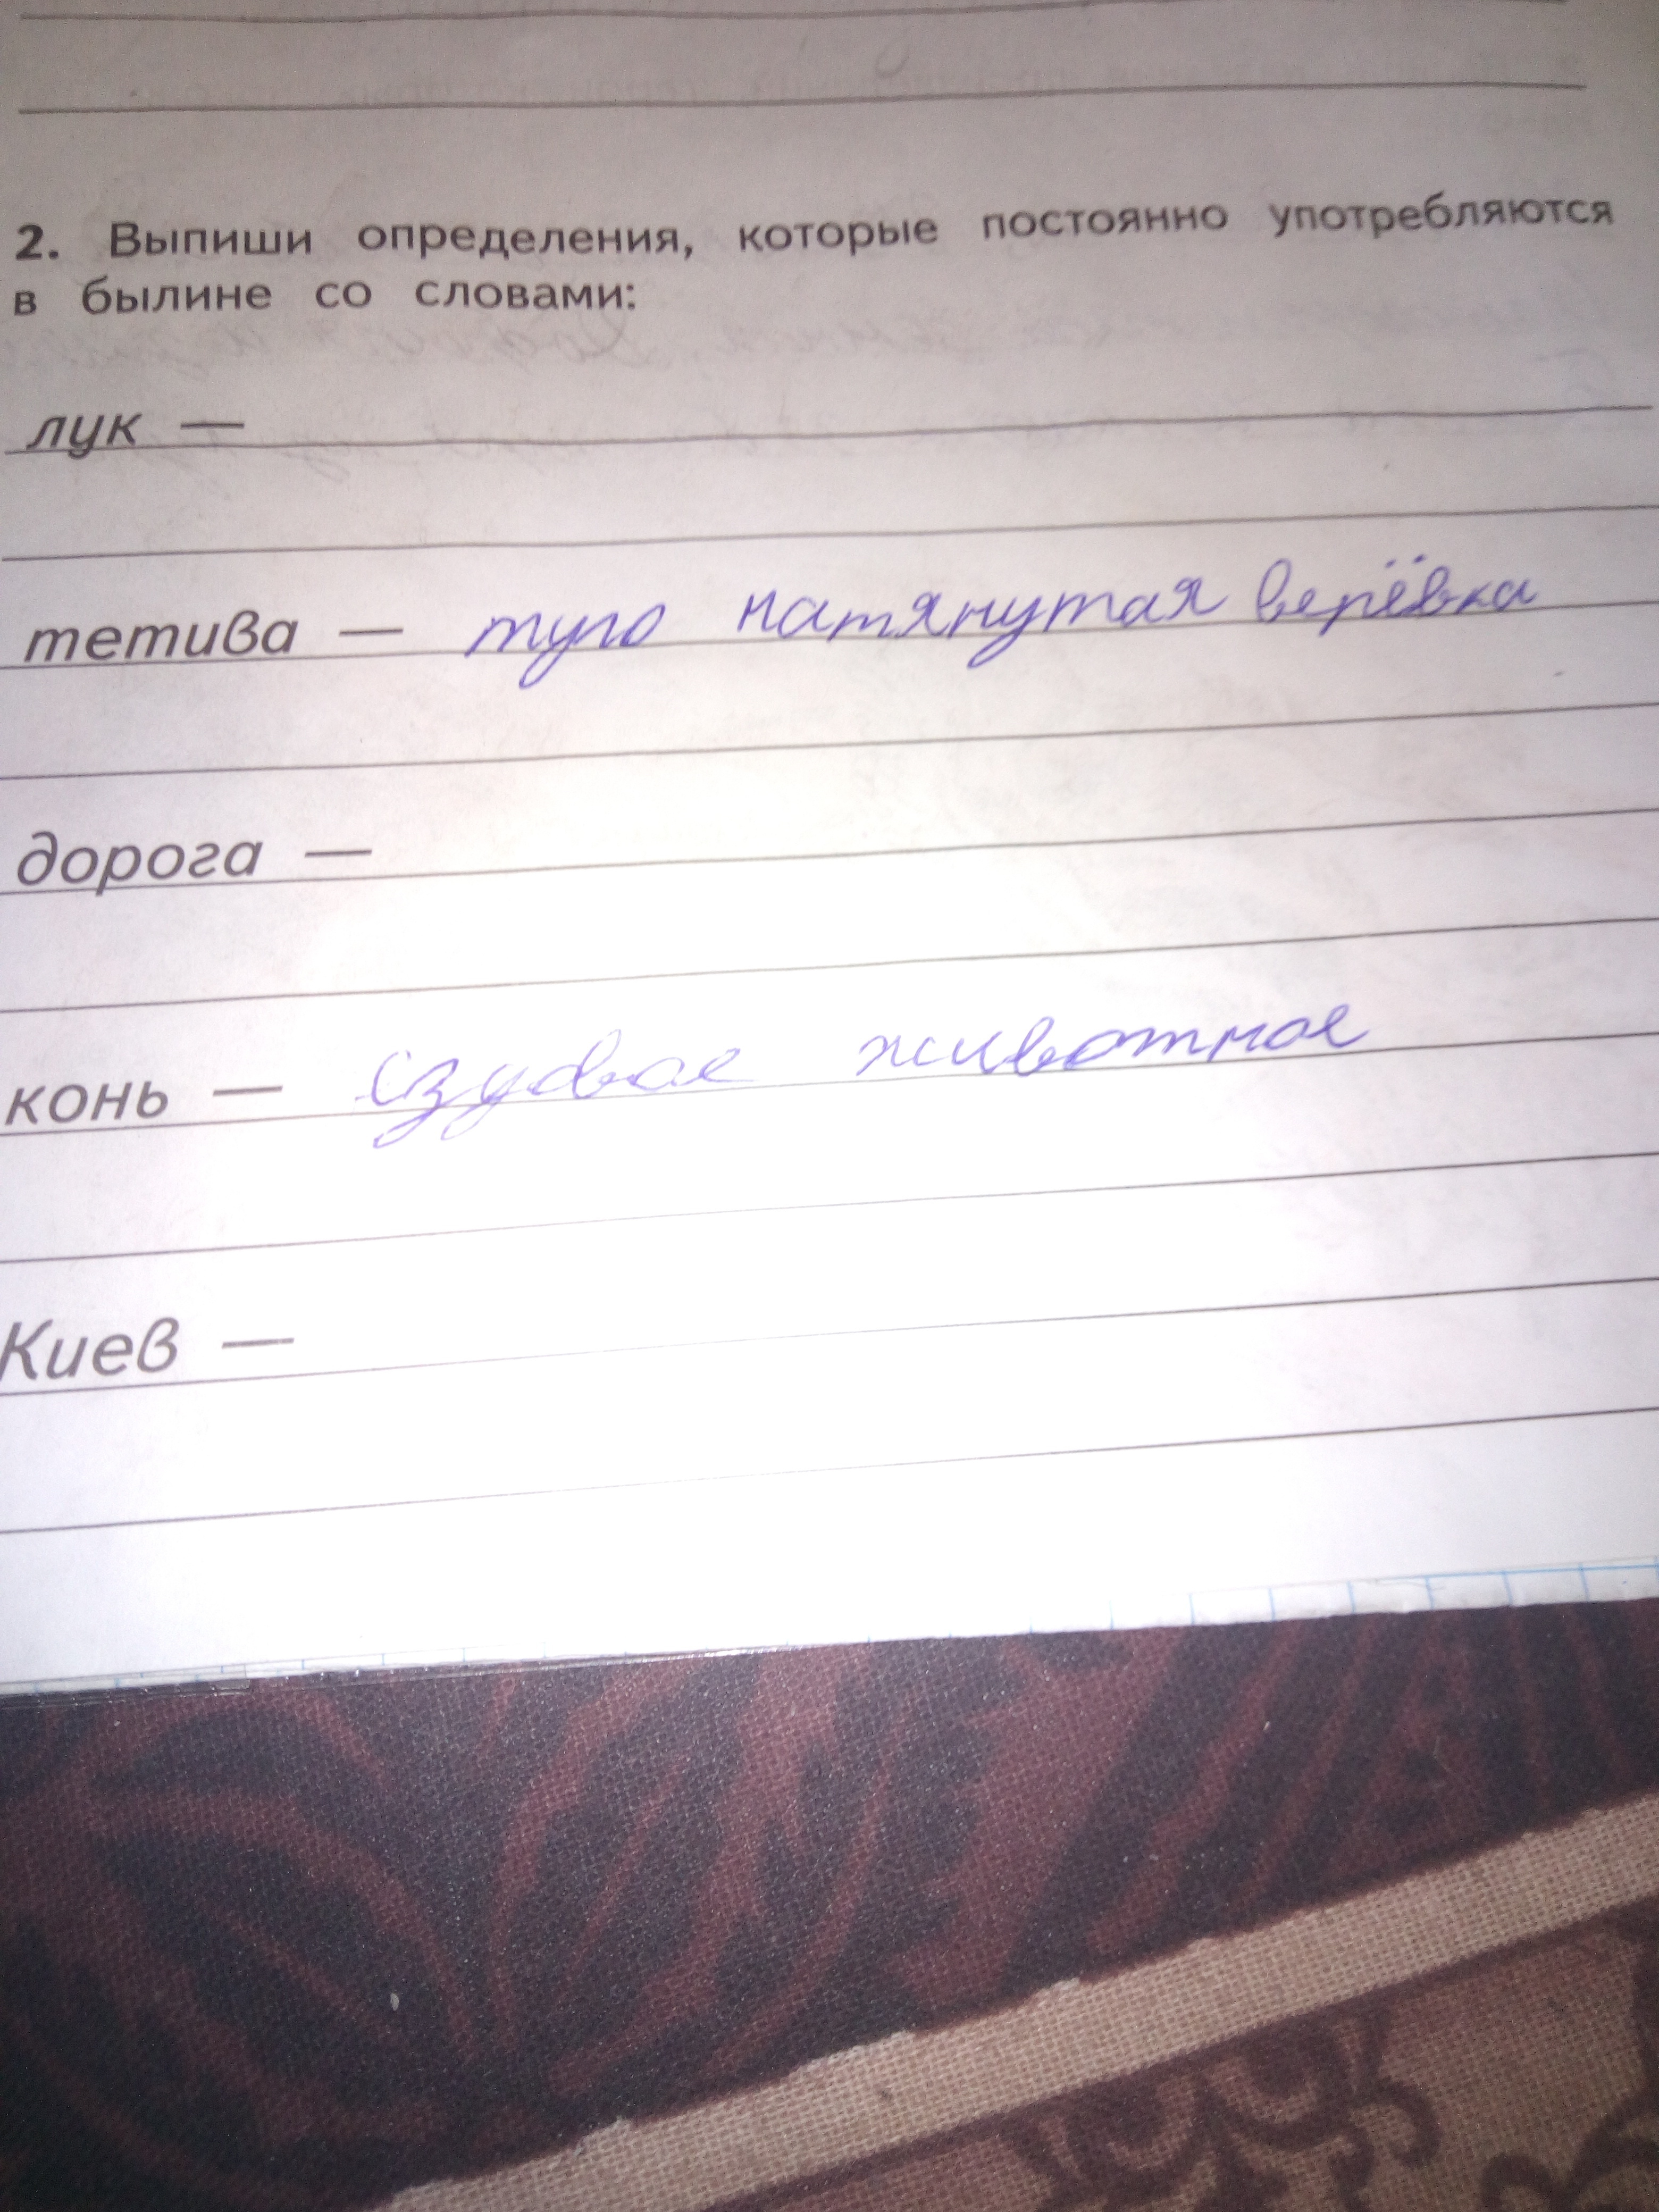 2. Выпиши определения, которые постоянно употребляются
в былине со словами:
лук —
тетива — туго натянутая верёвка
дорога —
конь — ездовое животное
Киев —